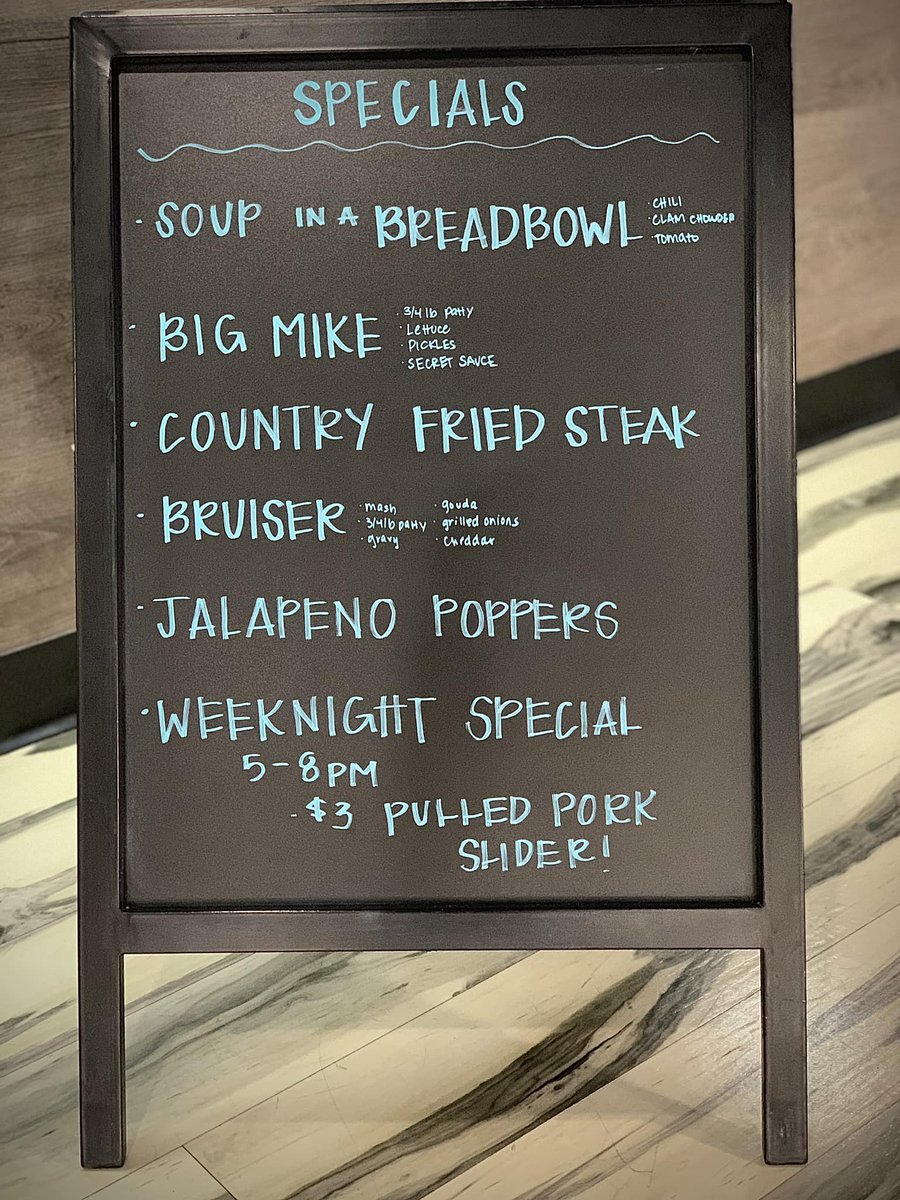 SPECIALS
· SOUP IN A BREADBOWL
· CHILI
· CLAM CHOWDER
· Tomato
· BIG MIKE
· 3/4 lb patty
· Lettuce
· PICKLES
· SECRET SAUCE
· COUNTRY FRIED STEAK
· BRUISER
· mash
· 3/4 lb patty
· gravy
· gouda
· grilled onions
· cheddar
· JALAPENO POPPERS
· WEEKNIGHT SPECIAL
5-8 PM
- $3 PULLED PORK
SLIDER!